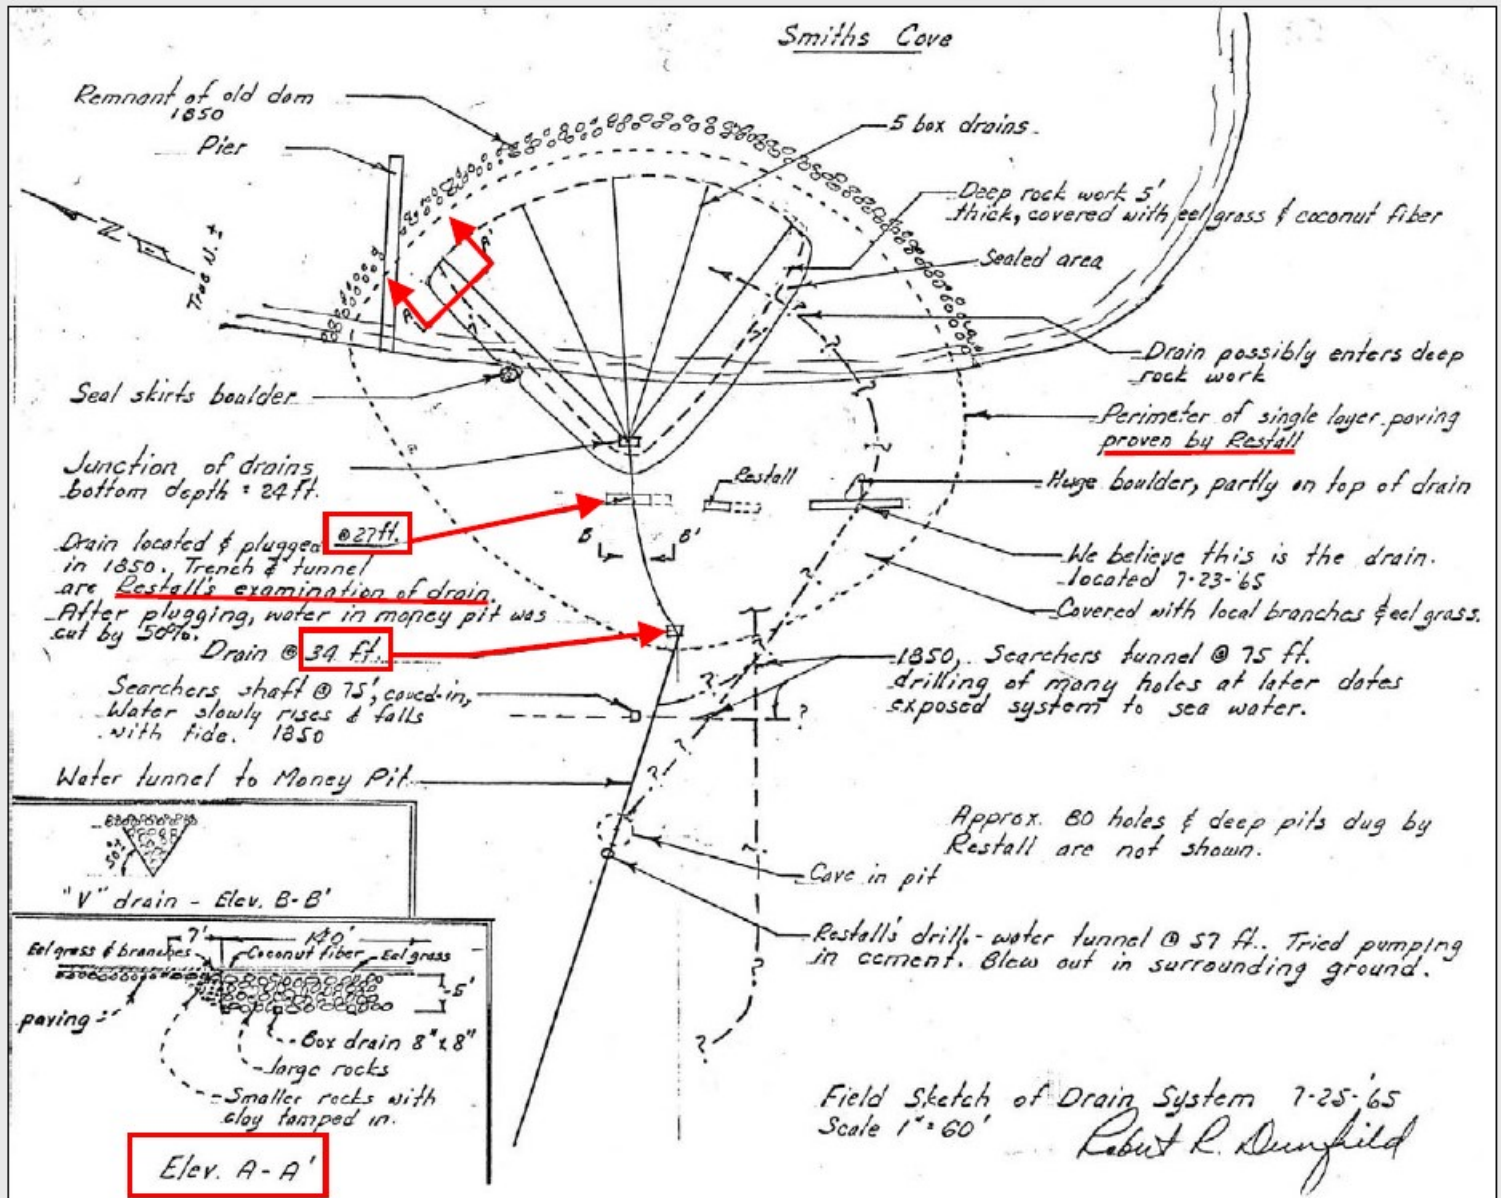 Smiths Cove
Remnant of old dam
1850
Pier
5 box drains.
Deep rock work 5'
thick, covered with eel grass & coconut fiber
Sealed area
N
True N. ±
A'
A
Drain possibly enters deep
rock work
Seal skirts boulder
Perimeter of single layer paving
proven by Restall
Junction of drains
bottom depth = 24 ft.
Restall
Huge boulder, partly on top of drain
Drain located & plugged @ 27 ft.
in 1850. Trench & tunnel
are Restall's examination of drain.
After plugging, water in money pit was
cut by 50%.
B B'
We believe this is the drain.
located 7-23-'65
Covered with local branches & eel grass.
Drain @ 34 ft.
1850, Searchers tunnel @ 75 ft.
drilling of many holes at later dates
exposed system to sea water.
Searchers shaft @ 75', caved-in,
Water slowly rises & falls
with tide. 1850
Water tunnel to Money Pit
Approx. 80 holes & deep pits dug by
Restall are not shown.
Cave in pit
50%
"V" drain - Elev. B-B'
Restall's drill - water tunnel @ 57 ft.. Tried pumping
in cement. Blew out in surrounding ground.
7' 140'
Eel grass & branches Coconut fiber Eel grass
5'
paving
Box drain 8" x 8"
large rocks
Smaller rocks with
clay tamped in.
Elev. A-A'
Field Sketch of Drain System 7-25-'65
Scale 1" = 60'
Robert R. Dunfield